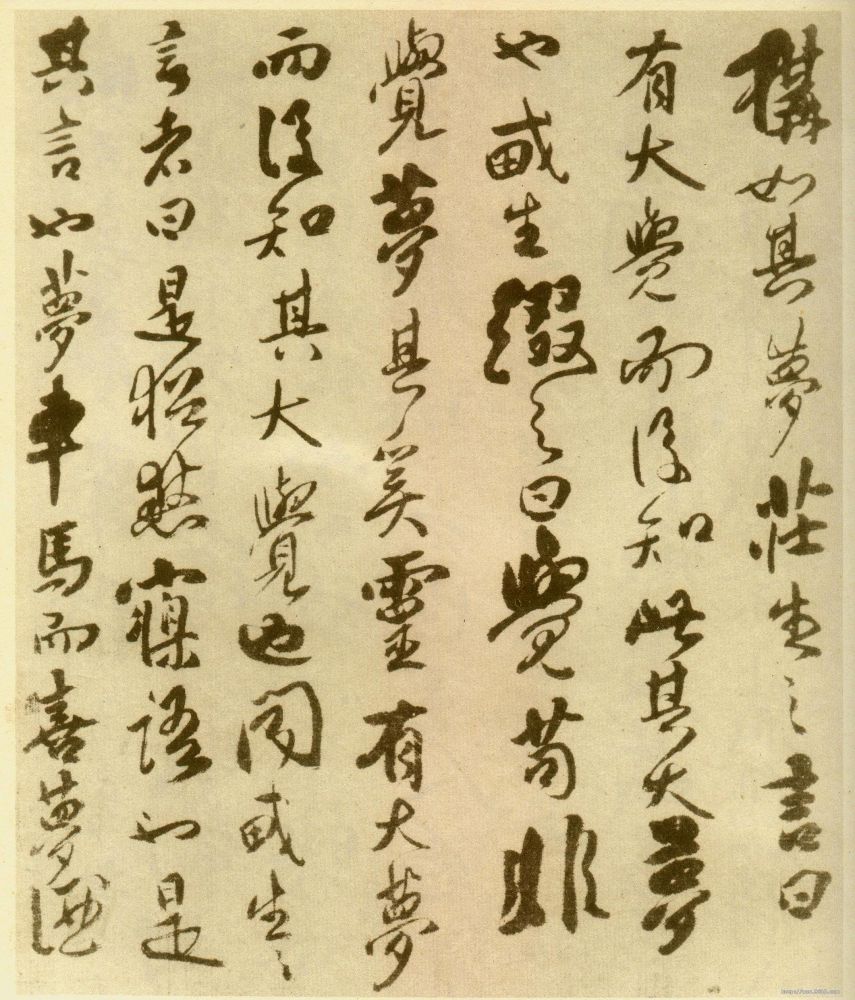 構如其夢莊生之言曰
有大覺而後知此其大夢
也生綴之曰覺苟非
覺夢其奚靈有大夢
而後知其大覺也聞生之
言者曰是猶語也是
其言也夢車馬而喜夢酒